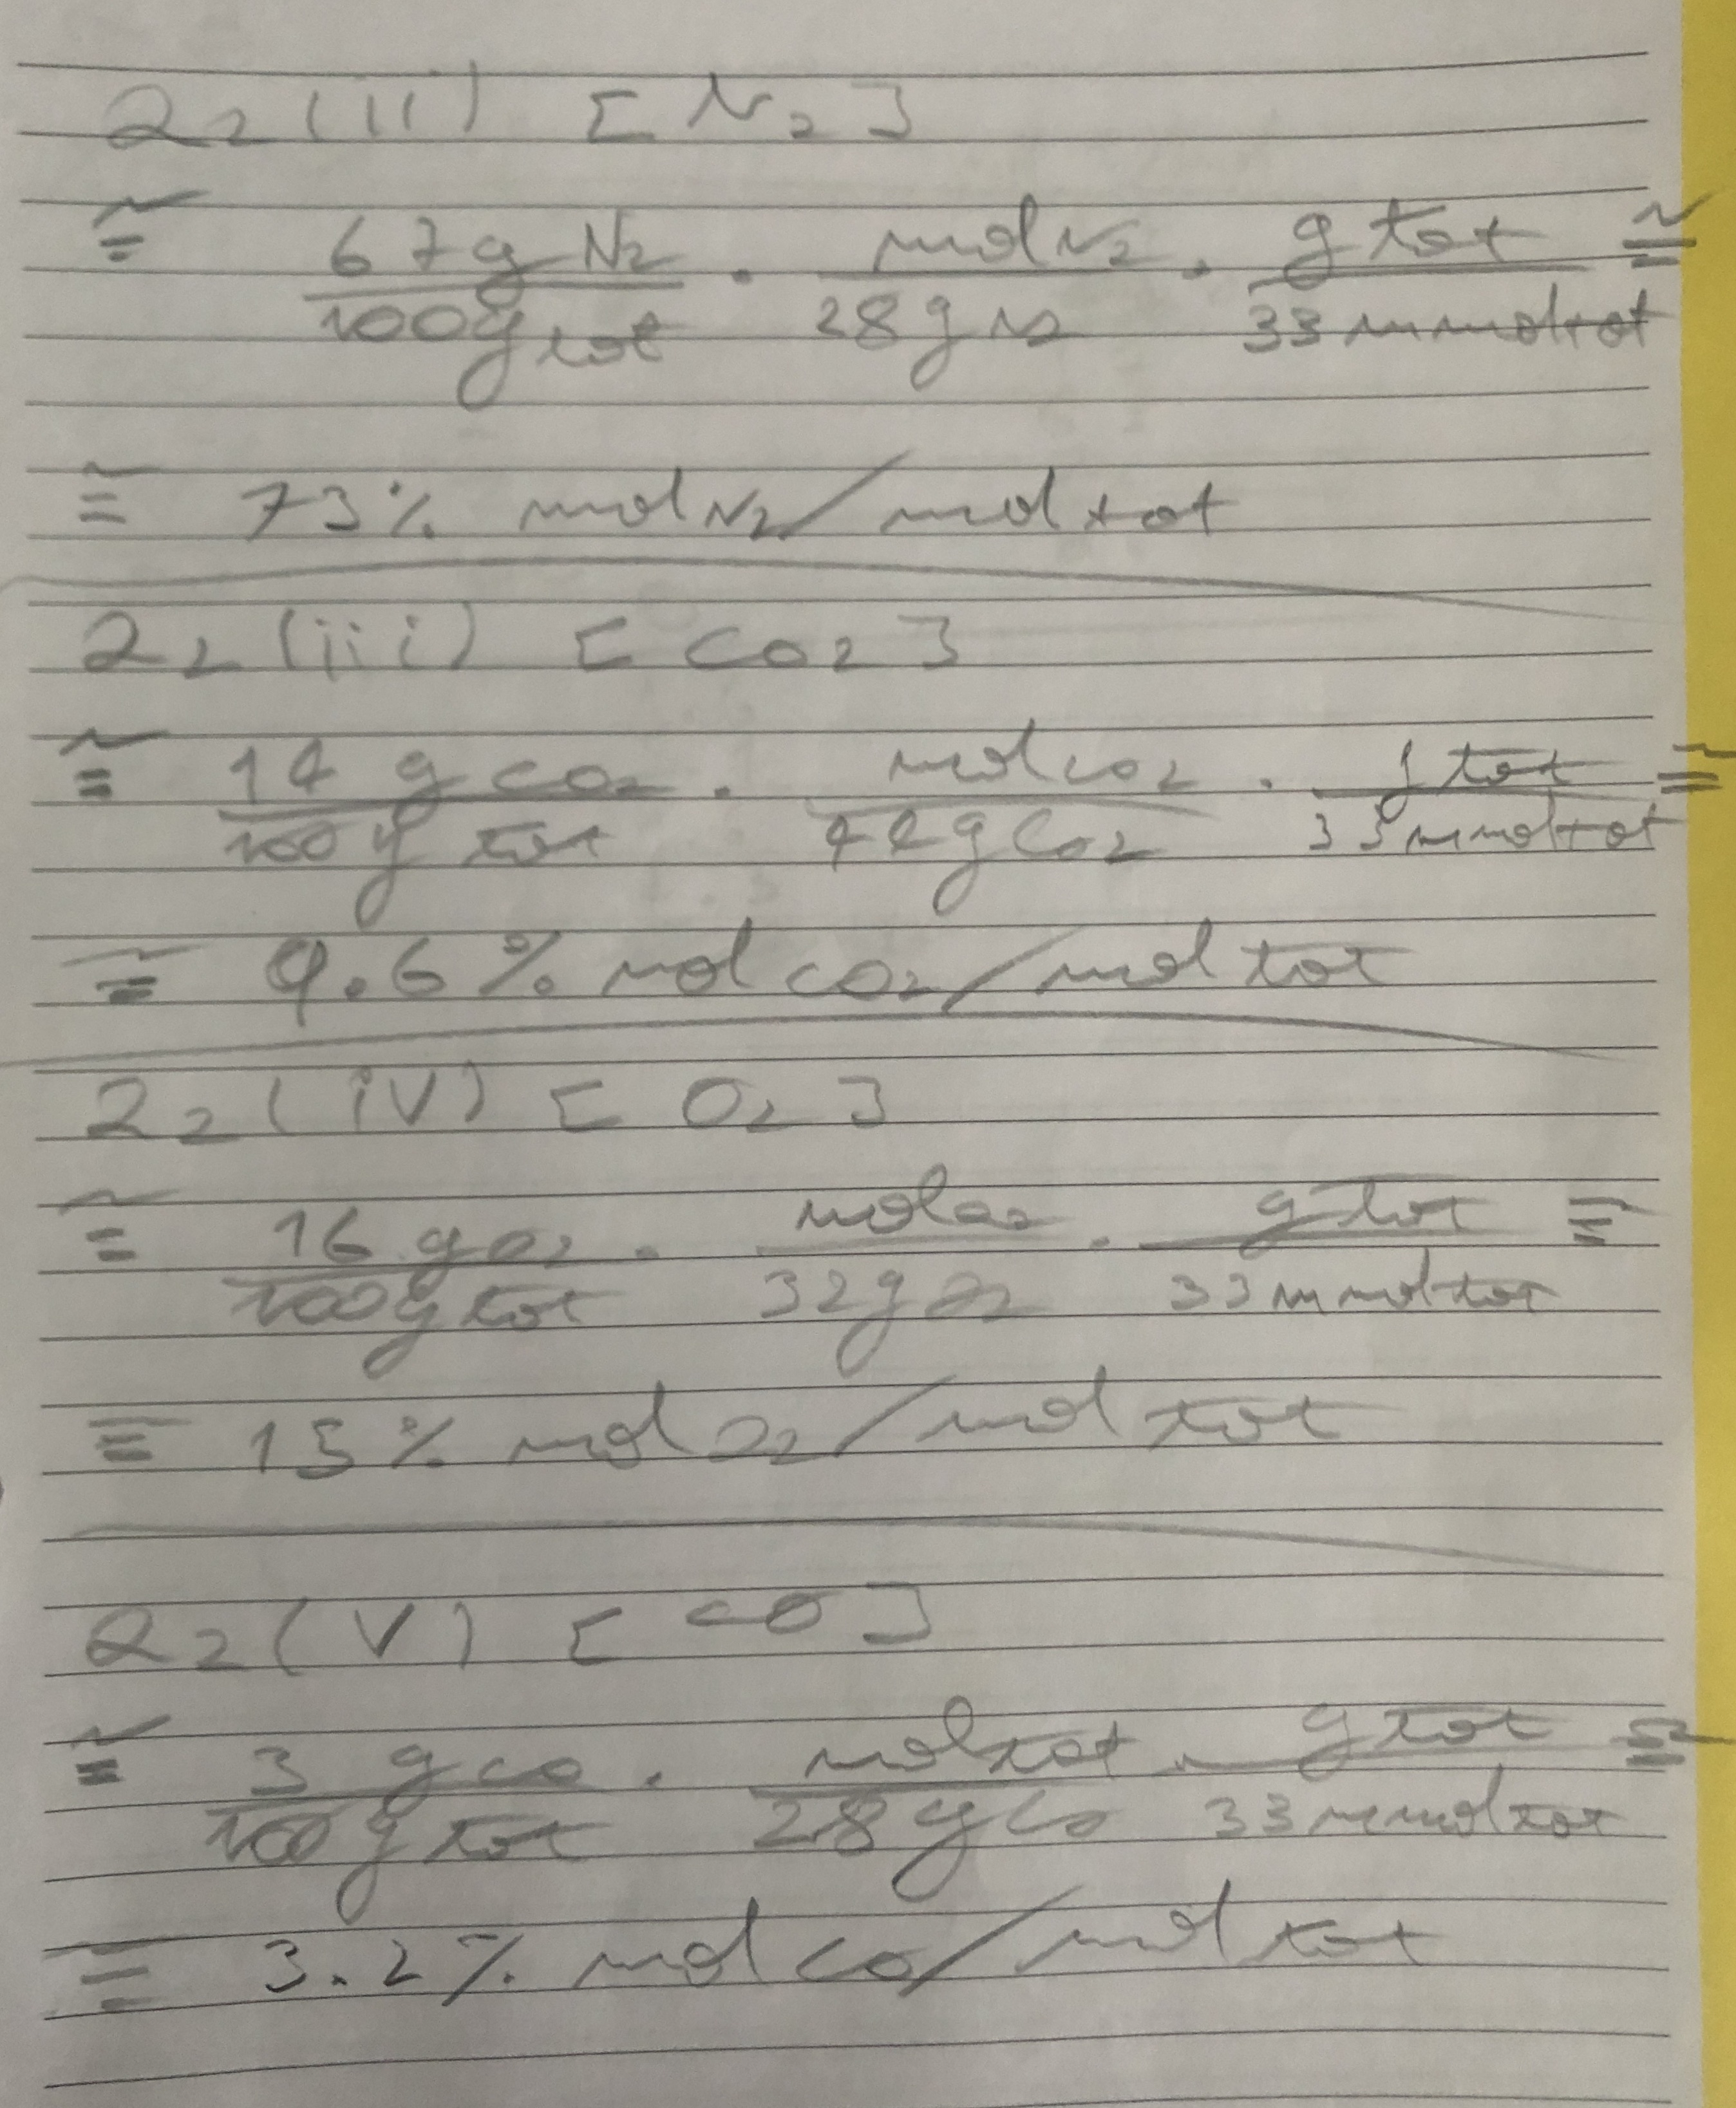 Q2 (ii) [N2]
≅ 67g N2 / 100g tot · mol N2 / 28g N2 · g tot / 33 mmol tot ≅
≅ 73% mol N2/mol tot
Q2 (iii) [CO2]
≅ 14 g CO2 / 100g tot · mol CO2 / 44g CO2 · g tot / 33 mmol tot ≅
≅ 9.6% mol CO2/mol tot
Q2 (iv) [O2]
≅ 16 g O2 / 100g tot · mol O2 / 32g O2 · g tot / 33 mmol tot ≅
≅ 15% mol O2/mol tot
Q2 (V) [CO]
≅ 3 g CO / 100g tot · mol tot / 28g CO · g tot / 33 mmol tot ≅
≅ 3.2% mol CO/mol tot